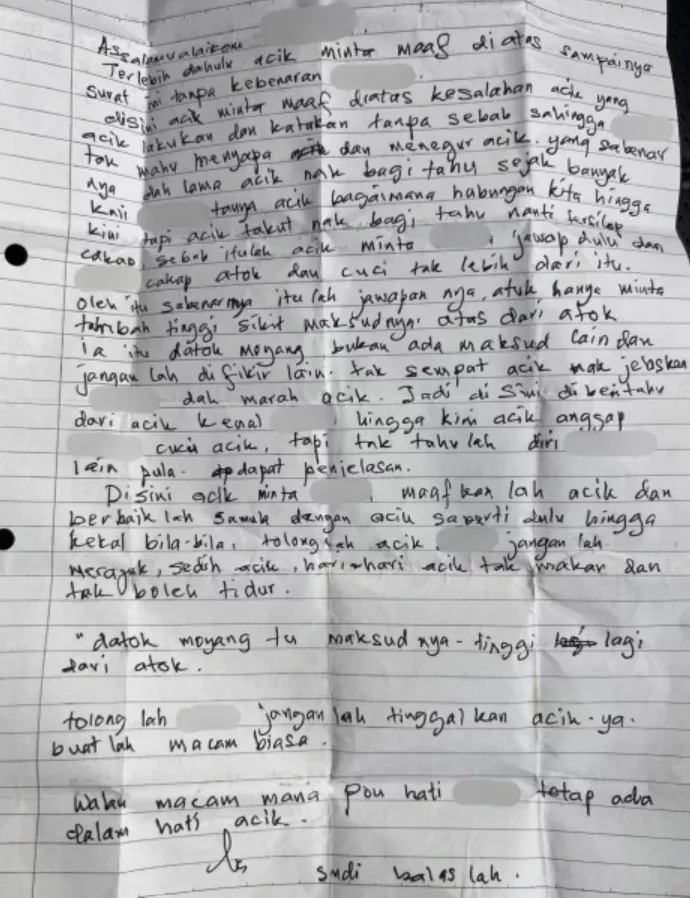 Assalamualaikom
Terlebih dahulu acik minta maaf di atas sampainya
surat ini tanpa kebenaran
disini acik minta maaf diatas kesalahan acik yang
acik lakukan dan katakan tanpa sebab sahingga
tak mahu menyapa dan menegur acik. yang sabenar
nya dah lama acik nak bagi tahu sejak banyak
kali tanya acik bagaimana habungan kita hingga
kini tapi acik takut nak bagi tahu nanti tersilap
cakap, sebab itulah acik minta jawap dulu dan
cakap atok dan cuci tak lebih dari itu.
oleh itu sabenarnya itu lah jawapan nya, atuk hanya minta
tambah tinggi sikit maksudnya atas dari atok
ia itu datok moyang bukan ada maksud lain dan
jangan lah di fikir lain. tak sempat acik nak jelaskan
dah marah acik. Jadi di sini di beritahu
dari acik kenal hingga kini acik anggap
cucu acik, tapi tak tahu lah diri
lain pula. dapat penjelasan.
Disini acik minta , maaf kan lah acik dan
berbaik lah samula dengan acik saparti dulu hingga
kekal bila-bila, tolong lah acik. jangan lah
merajuk, sedih acik, hari-hari acik tak makan dan
tak boleh tidur.
"datok moyang tu maksud nya - tinggi lagi
dari atok.
tolong lah jangan lah tinggal kan acik. ya.
buat lah macam biasa.
Walau macam mana pon hati tetap ada
dalam hati acik.
sudi balas lah.